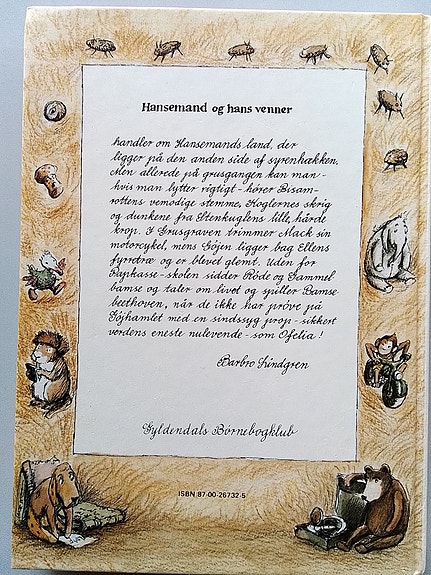 Hansemand og hans venner
handler om Hansemands land, der
ligger på den anden side af syrenhækken.
Men allerede på grusgangen kan man -
hvis man lytter rigtigt - hører Bisam-
rottens vemodige stemme, Koglernes skrig
og dunkene fra Stenkuglens lille, hårde
krop. I Grusgraven trimmer Mack sin
motorcykel, mens Göjen ligger bag Ellens
fyrretræ og er blevet glemt. Uden for
Raphasse-skolen sidder Röde og Gammel
bamse og taler om livet og spiller Bamse
beethoven, når de ikke har prøve på
Töjhamlet med en sindssyg prop - sikkert
verdens eneste nulevende - som Ofelia!
Barbro Lindgren
Gyldendals Børnebogklub
ISBN 87-00-26732-5